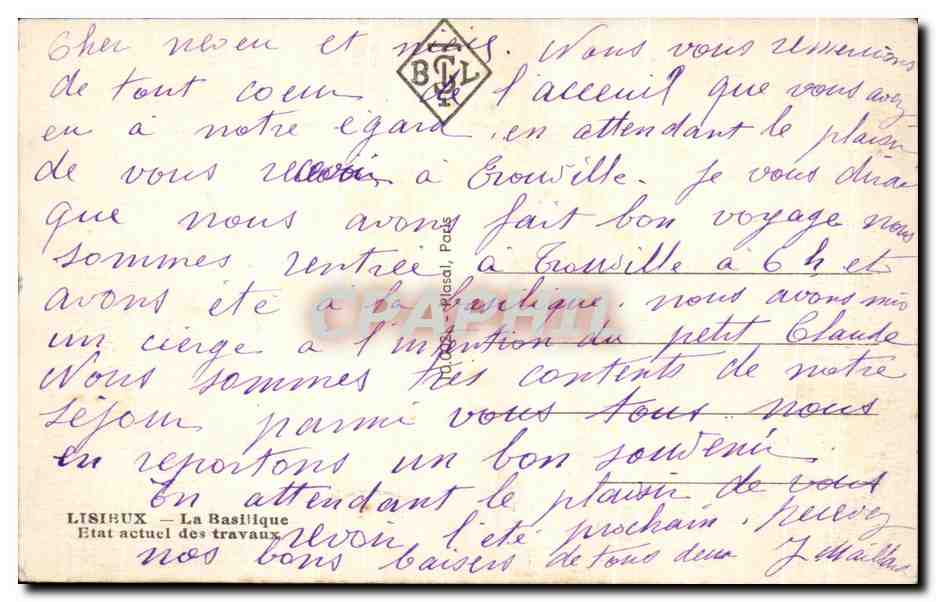 Cher neveu et nièce. Nous vous remercions
de tout coeur de l'acceuil que vous avez
eu à notre égard, en attendant le plaisir
de vous recevoir à Trouville. Je vous dirai
que nous avons fait bon voyage nous
sommes rentrée à Trouville à 6 h et
avons été à la basilique. nous avons mis
un cierge à l'intention du petit Claude
Nous sommes très contents de notre
séjour parmi vous tous nous
en reportons un bon souvenir
En attendant le plaisir de vous
revoir l'été prochain. Recevez
nos bons baisers de tous deux J Maillard
BL
Plasal, Paris
CPAPHIL
LISIEUX — La Basilique
Etat actuel des travaux